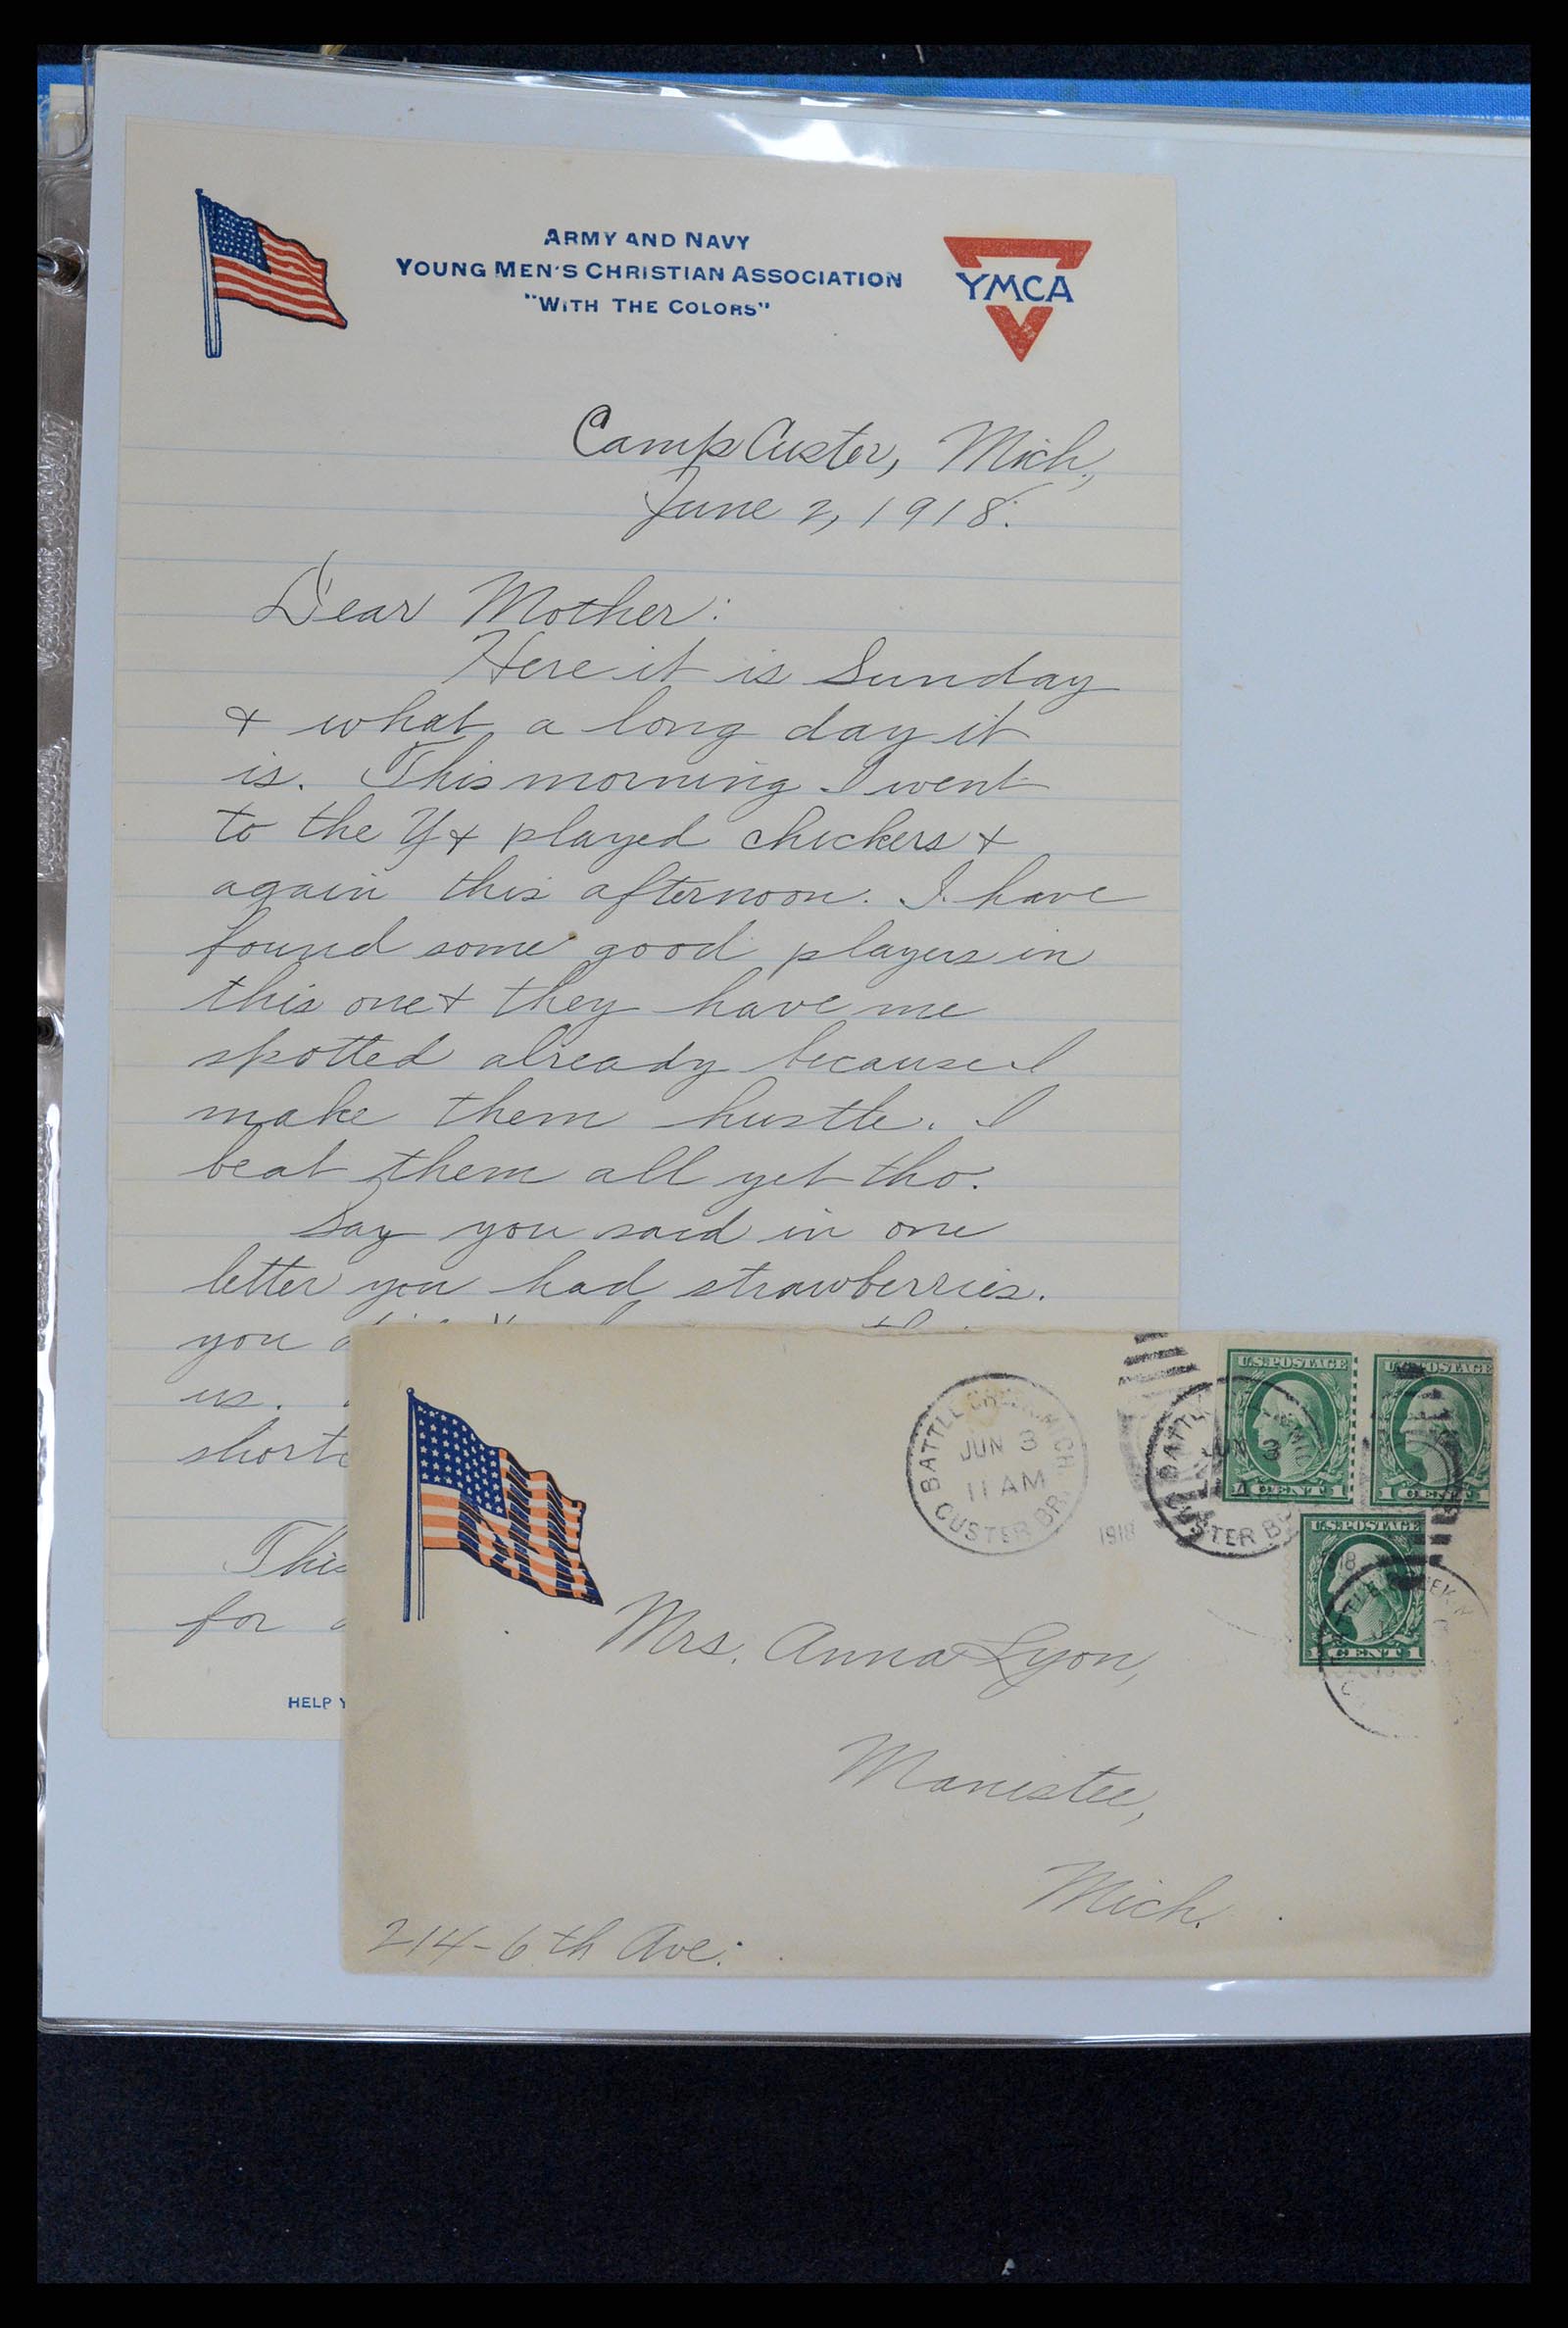 ARMY AND NAVY
YOUNG MEN'S CHRISTIAN ASSOCIATION
"WITH THE COLORS"
YMCA
Camp Custer, Mich.,
June 2, 1918.
Dear Mother:
Here it is Sunday
& what a long day it
is. This morning I went
to the Y & played checkers &
again this afternoon. I have
found some good players in
this one & they have me
spotted already because I
make them hustle. I
beat them all yet tho.
Say you said in one
letter you had strawberries.
you
us.
short
This
for
HELP Y
BATTLE CREEK, MICH.
JUN 3
11 AM
1918
CUSTER BR.
BATTLE
JUN 3
STER B
1918
U.S. POSTAGE
1 CENT 1
U.S. POSTAGE
1 CENT 1
U.S. POSTAGE
1 CENT 1
Mrs. Anna Lyon,
Manistee,
Mich.
214-6th Ave.